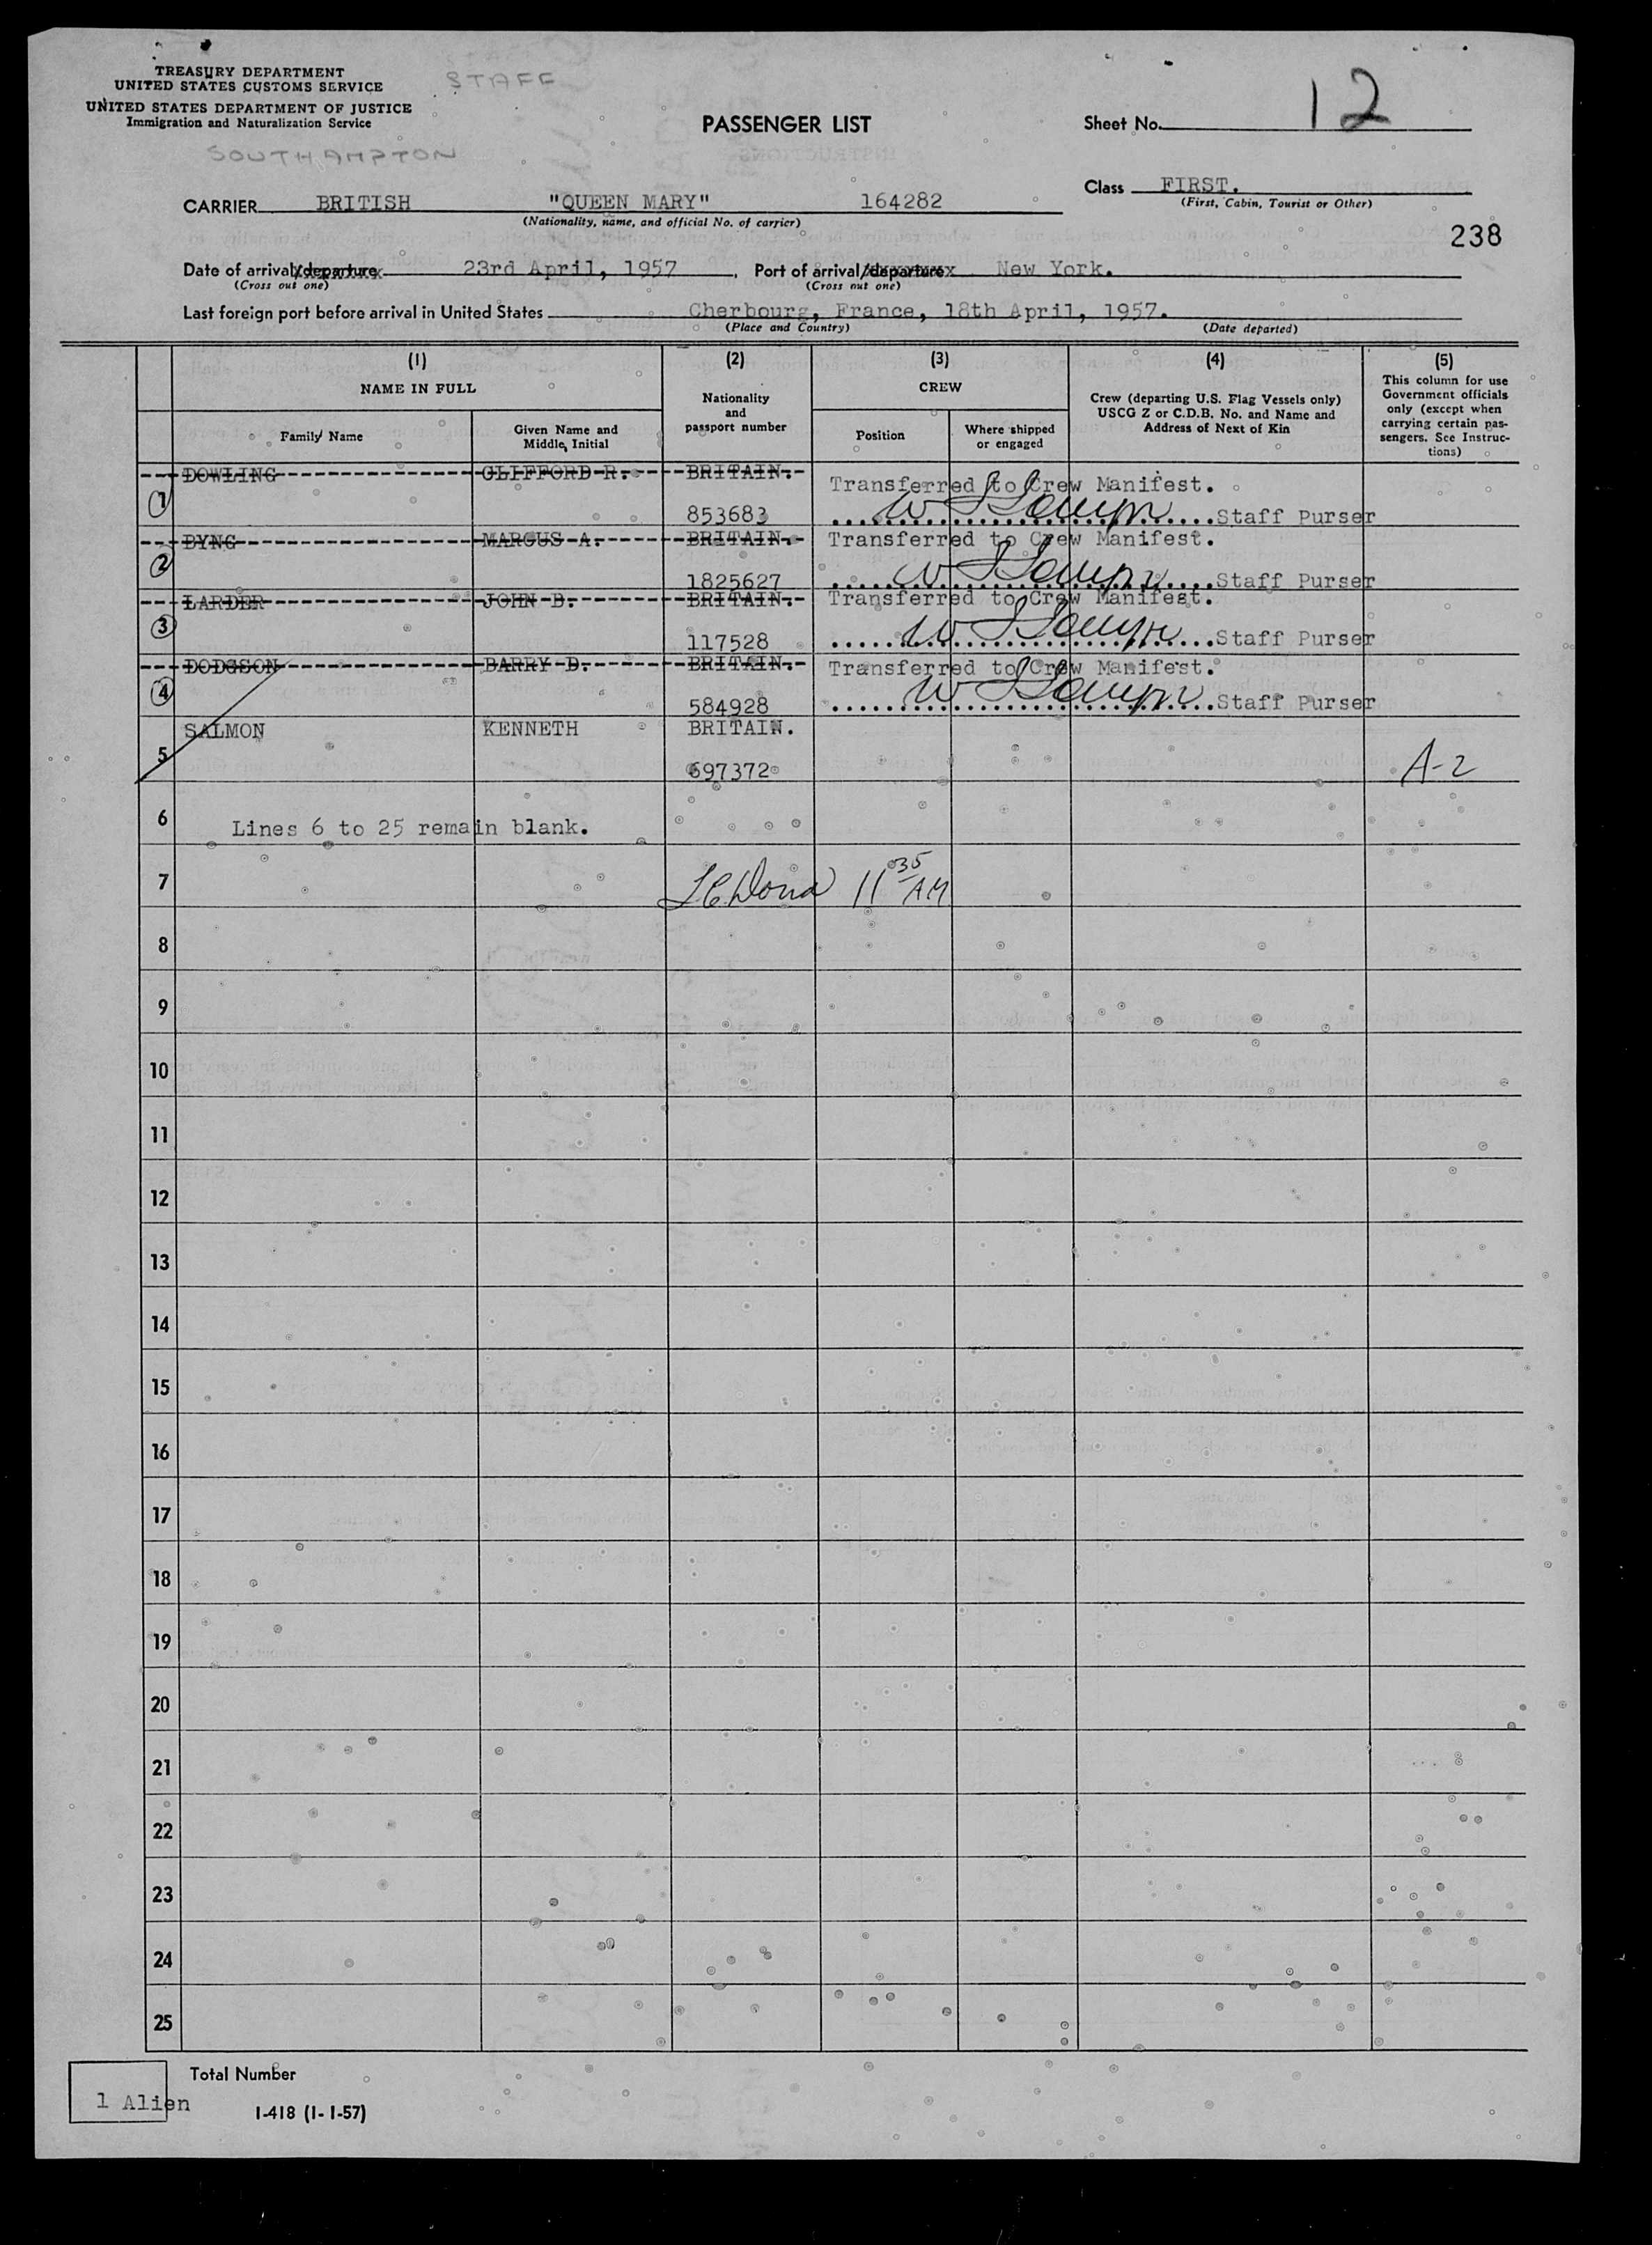 TREASURY DEPARTMENT
UNITED STATES CUSTOMS SERVICE
UNITED STATES DEPARTMENT OF JUSTICE
Immigration and Naturalization Service
STAFF
SOUTHAMPTON
PASSENGER LIST
Sheet No. 12
Class FIRST.
(First, Cabin, Tourist or Other)
CARRIER BRITISH "QUEEN MARY" 164282
(Nationality, name, and official No. of carrier)
238
Date of arrival/departure 23rd April, 1957 , Port of arrival/departure New York.
(Cross out one) (Cross out one)
Last foreign port before arrival in United States Cherbourg, France, 18th April, 1957.
(Place and Country) (Date departed)
(1) (2) (3) (4) (5)
NAME IN FULL
Family Name
Given Name and
Middle Initial
Nationality
and
passport number
CREW
Position
Where shipped
or engaged
Crew (departing U.S. Flag Vessels only)
USCG Z or C.D.B. No. and Name and
Address of Next of Kin
This column for use
Government officials
only (except when
carrying certain pas-
sengers. See Instruc-
tions)
1 DOWLING CLIFFORD R. BRITAIN. Transferred to Crew Manifest.
853683 Staff Purser
2 BYNG MARCUS A. BRITAIN. Transferred to Crew Manifest.
1825627 Staff Purser
3 LARDER JOHN D. BRITAIN. Transferred to Crew Manifest.
117528 Staff Purser
4 DODGSON BARRY D. BRITAIN. Transferred to Crew Manifest.
584928 Staff Purser
5 SALMON KENNETH BRITAIN.
697372 A-2
6 Lines 6 to 25 remain blank.
7 11 35 AM
8
9
10
11
12
13
14
15
16
17
18
19
20
21
22
23
24
25
Total Number
1 Alien
I-418 (1-1-57)